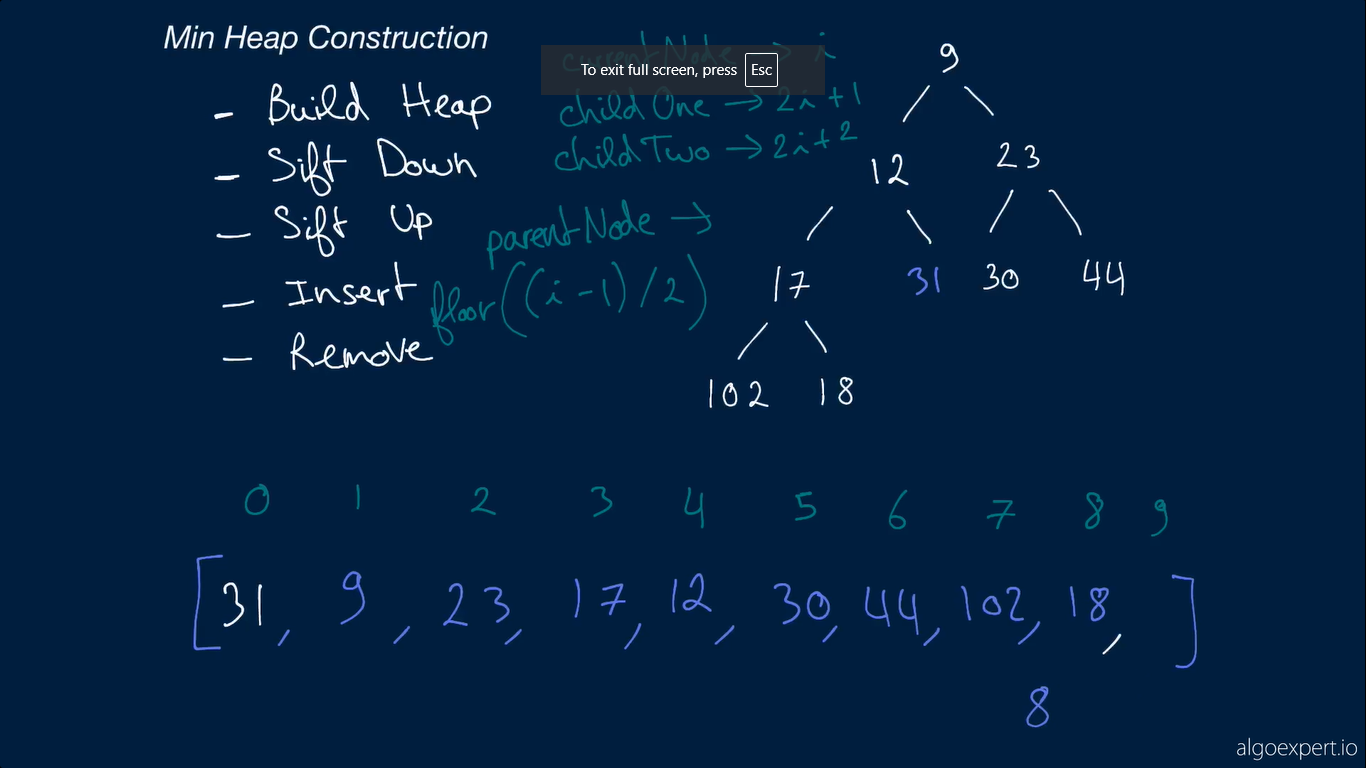 Min Heap Construction
- Build Heap
- Sift Down
- Sift Up
- Insert
- Remove
currentNode → i
To exit full screen, press Esc
childOne → 2i+1
childTwo → 2i+2
parentNode →
floor((i-1)/2)
9
12 23
17 31 30 44
102 18
0 1 2 3 4 5 6 7 8 9
[31, 9, 23, 17, 12, 30, 44, 102, 18, ]
8
algoexpert.io